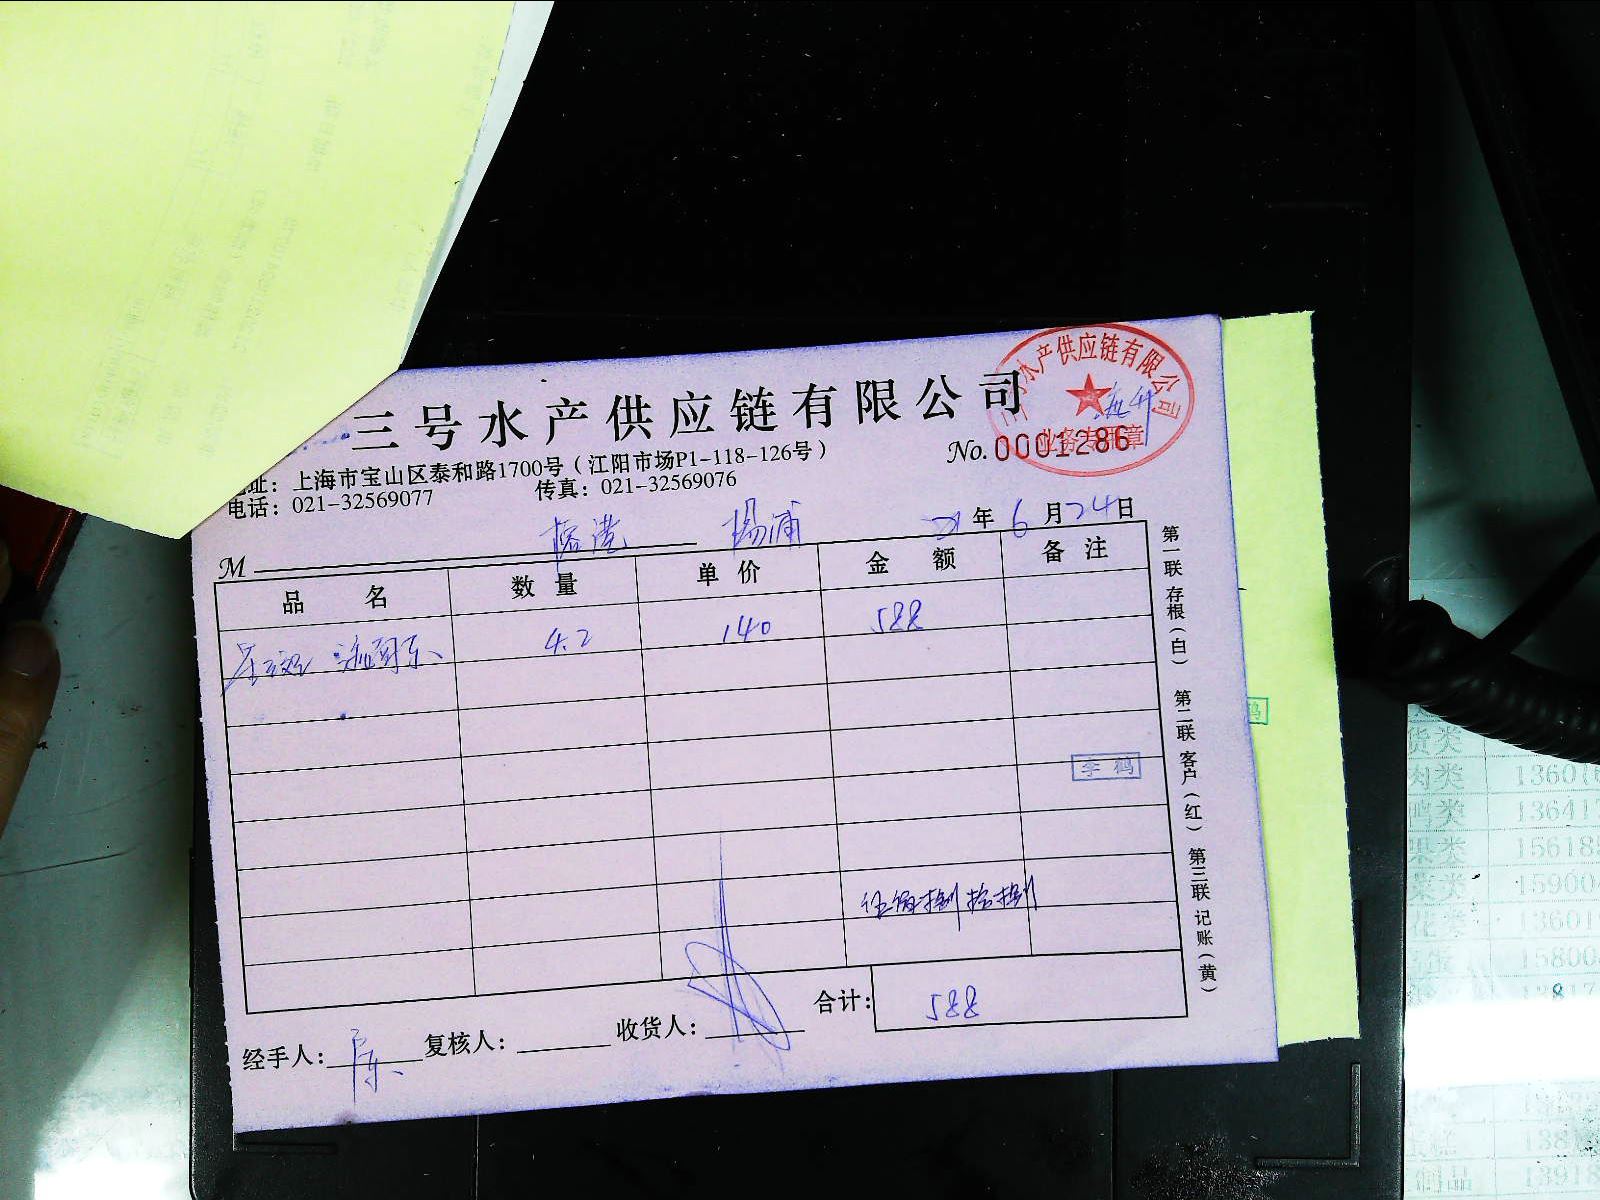 三号水产供应链有限公司
水产供应链有限公司
业务专用章
No. 0001286
地址：上海市宝山区泰和路1700号（江阳市场P1-118-126号）
电话：021-32569077 传真：021-32569076
M 杨浦
21年6月24日
品名 数量 单价 金额 备注
4.2 140 588
李鹤
伍佰捌拾捌
合计：588
经手人：陈 复核人： 收货人：
第一联存根（白） 第二联客户（红） 第三联记账（黄）
货类
肉类 13601
鸭类 13641
果类 15618
菜类 15900
花类 13601
15800